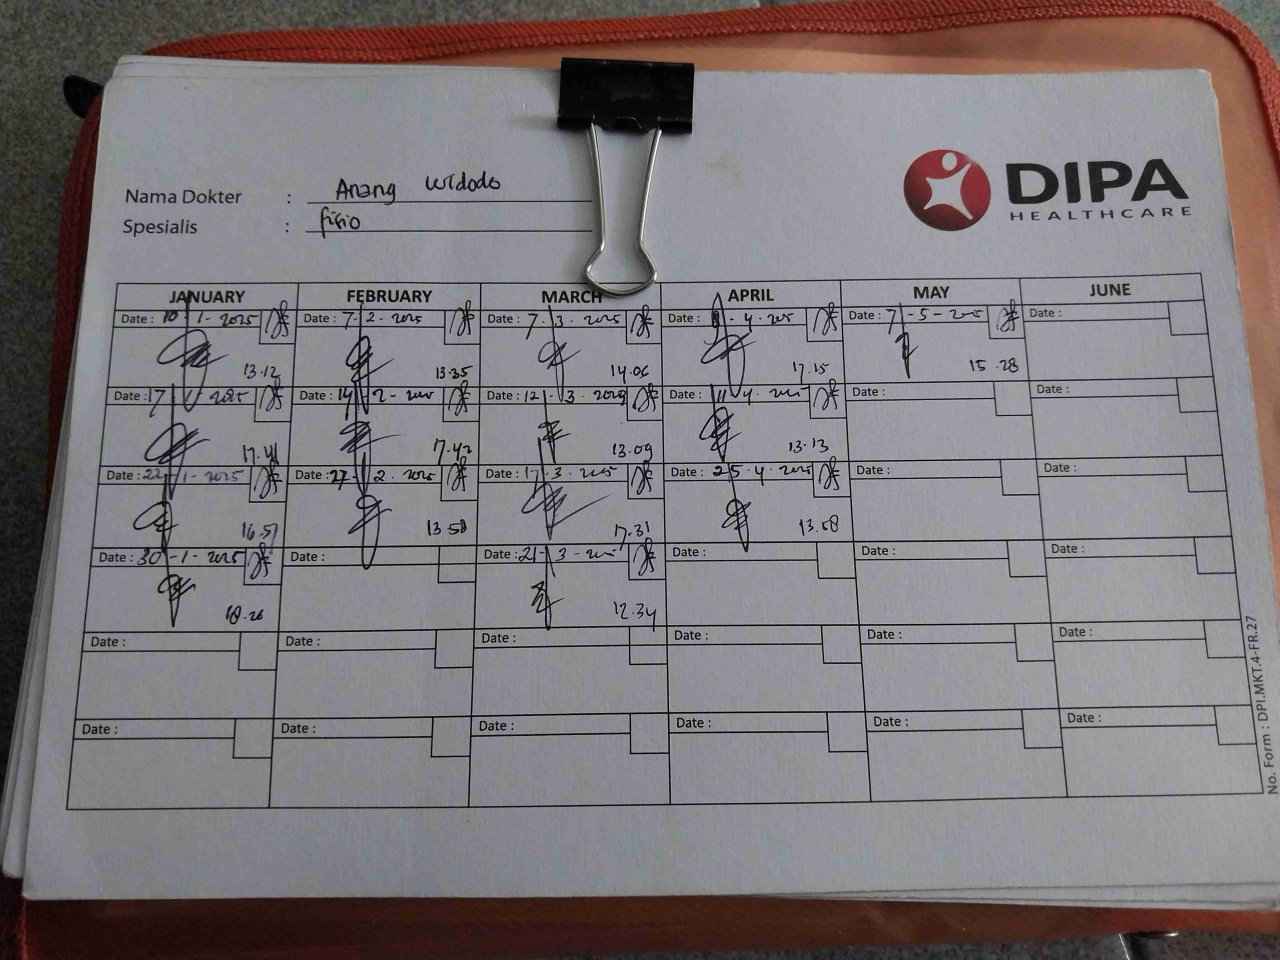 Nama Dokter : Anang Widodo
Spesialis : fisio
DIPA
HEALTHCARE
JANUARY FEBRUARY MARCH APRIL MAY JUNE
Date : 10-1-2025 Date : 7-2-2025 Date : 7.3-2025 Date : -4-2025 Date : 7-5-2025 Date :
13.12 13.35 14.06 17.15 15.28
Date : 17-1-2025 Date : 14-2-2025 Date : 12-3-2025 Date : 11-4-2025 Date : Date :
17.41 17.42 13.09 13.13
Date : 22-1-2025 Date : 27-2-2025 Date : 17-3-2025 Date : 25-4-2025 Date : Date :
16.57 13.58 17.31 13.58
Date : 30-1-2025 Date : Date : 21-3-2025 Date : Date : Date :
18.26 12.34
Date : Date : Date : Date : Date : Date :
Date : Date : Date : Date : Date : Date :
No. Form : DPI.MKT.4-FR.27